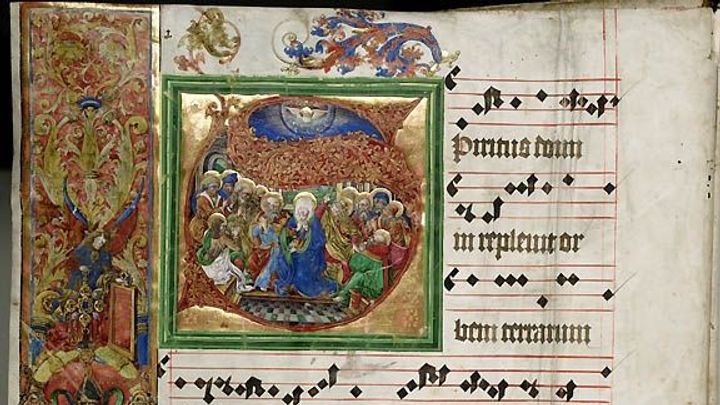 Spiritus domi
ni replevit or
bem terrarum